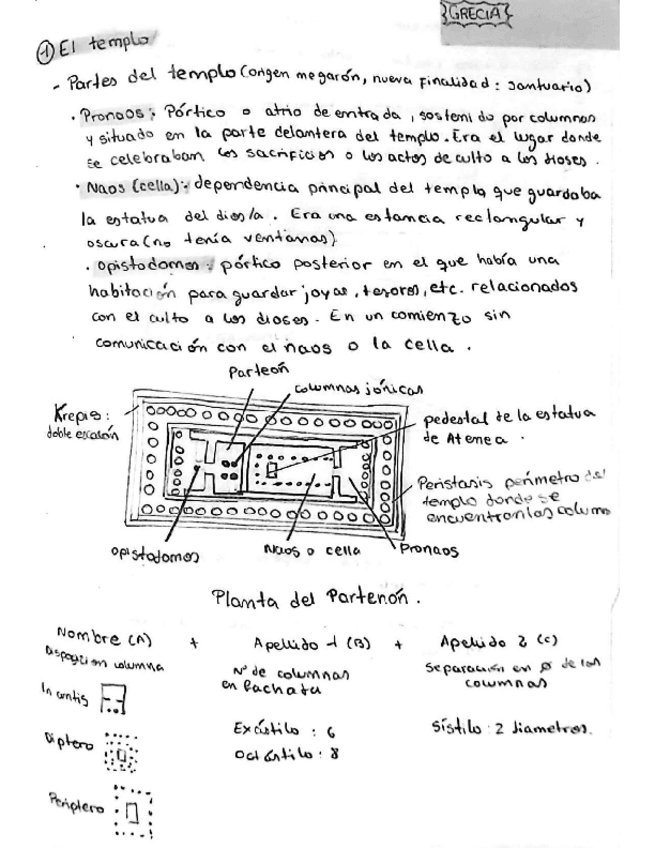 {GRECIA}
① El templo
- Partes del templo (origen megarón, nueva finalidad: santuario)
· Pronaos: Pórtico o atrio de entrada, sostenido por columnas
y situado en la parte delantera del templo. Era el lugar donde
se celebraban los sacrificios o los actos de culto a los dioses.
· Naos (cella): dependencia principal del templo, que guardaba
la estatua del dios/a. Era una estancia rectangular y
oscura (no tenía ventanas)
· Opistodomos: pórtico posterior en el que había una
habitación para guardar joyas, tesoros, etc. relacionados
con el culto a los dioses. En un comienzo sin
comunicación con el naos o la cella.
Parteón
columnas jónicas
Krepis:
doble escalón
pedestal de la estatua
de Atenea.
Peristasis perímetro del
templo donde se
encuentran las column
opistodomos
Naos o cella
Pronaos
Planta del Partenón.
Nombre (A) + Apellido 1 (B) + Apellido 2 (C)
Disposición columna
Nº de columnas
en fachata
Separación en ø de las
columnas
In antis
Díptero
Exástilo: 6
Octástilo: 8
Sístilo: 2 diametros.
Períptero